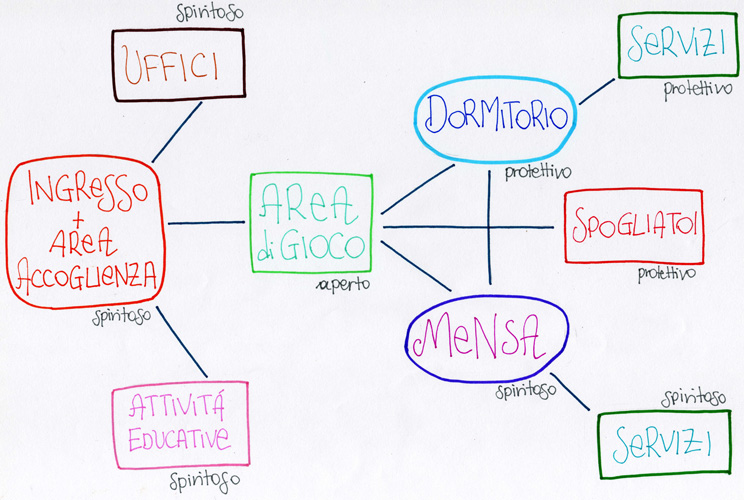 spiritoso
UFFICI
INGRESSO
+
AREA
ACCOGLIENZA
spiritoso
ATTIVITÁ
EDUCATIVE
spiritoso
AREA
di GIOCO
aperto
DORMITORIO
protettivo
SERVIZI
protettivo
SPOGLIATOI
protettivo
MENSA
spiritoso
spiritoso
SERVIZI